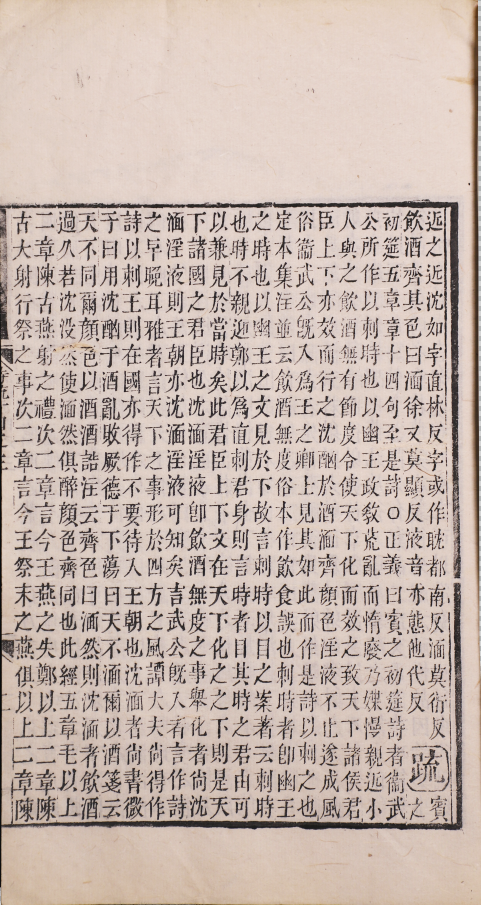 远之近沈如字直林反字或作耽都南反湎莫衍反
飲酒齊其色曰湎徐又莫顯反液音亦態他代反
疏
賓
之
初筵五章章十四句至是詩○正義曰賓之初筵詩者衞武
公所作以刺時也以幽王政敎荒亂而惰廢乃媟慢親近小
人與之飲酒無有節度令使天下化而效之致天下諸侯君
臣上下亦效而行之沈酗於酒湎齊顏色淫液不止遂成風
俗衞武公旣入爲王之卿士見其如此而作是詩以刺之也
定本集注並云飲酒無度俗本作飲食誤也刺時者卽幽王
之時也以幽王之文見於下故言刺時以目之案著云刺時
也時不親迎鄭以爲直刺君身則言時者目其時之君由可
以兼見於當時矣此君臣上下文在天下化之之下則是天
下諸國之君臣也沈湎淫液卽飲酒無度之事舉化者尚沈
湎淫液則王朝亦沈湎淫液可知矣言武公旣入者言作詩
之早晚耳雅者言天下之事形於四方之風譚大夫尚得作
詩以刺王則在國亦得作不要待入王朝也沈湎者尚書微
子曰用沈酗于酒亂敗厥德于下蕩曰天不湎爾以酒箋云
天不同爾顏色以酒酒誥注云齊色曰湎然則沈湎者飲酒
過久若沈没然使湎然俱醉顏色齊同也此經五章毛以上
二章陳古燕射之禮次二章言今王燕之失鄭以上二章陳
古大射行祭之事次二章言今王祭末之燕俱以上二章陳